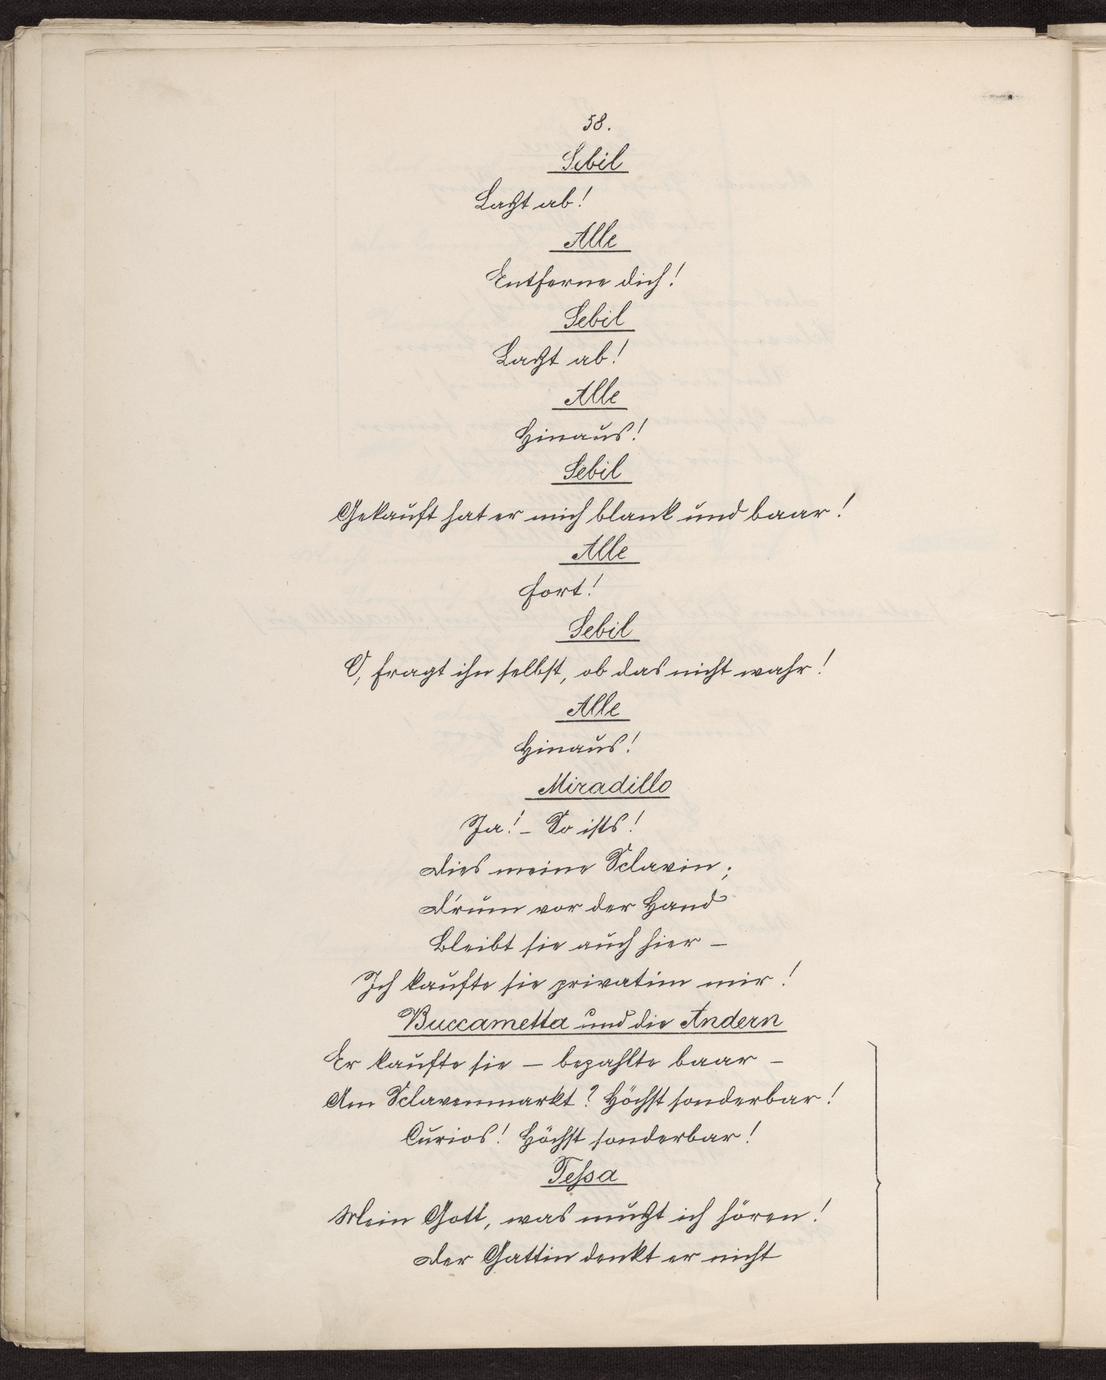 58.
Sebil
Laßt ab!
Alle
Entferne dich!
Sebil
Laßt ab!
Alle
Hinaus!
Sebil
Gekauft hat er mich blank und baar!
Alle
Fort!
Sebil
O, fragt ihn selbst, ob das nicht wahr!
Alle
Hinaus!
Miradillo
Ja! – So ists!
Dies meine Sclavin;
D'rum vor der Hand
Bleibt sie auch hier –
Ich kaufte sie privatim mir!
Buccametta und die Andern
Er kaufte sie – bezahlte baar –
Am Sclavenmarkt? Höchst sonderbar!
Curios! Höchst sonderbar!
Tessa
Mein Gott, was mußt ich hören!
Der Gattin denkt er nicht